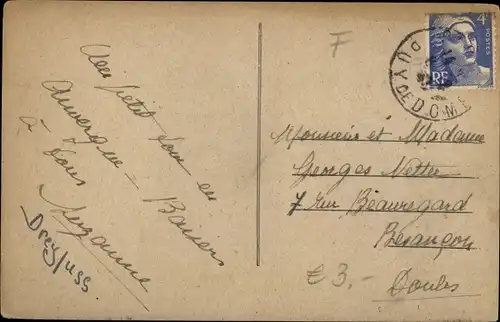 Un petit tour en
Auvergne - Baisers
à tous
Suzanne
Dreyfuss
F
4F
POSTES
RF
PUY DE DOME
Monsieur et Madame
Georges Netter
7 rue Beauregard
Besançon
Doubs
€ 3,-